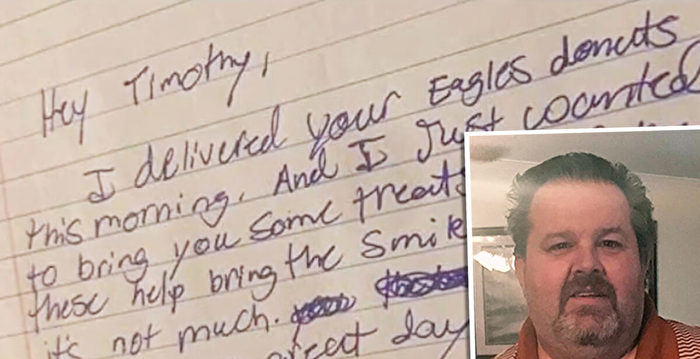 Hey Timothy,
I delivered your Eagles donuts
this morning. And I Just wanted
to bring you some treats
these help bring the smile
it's not much.
great day